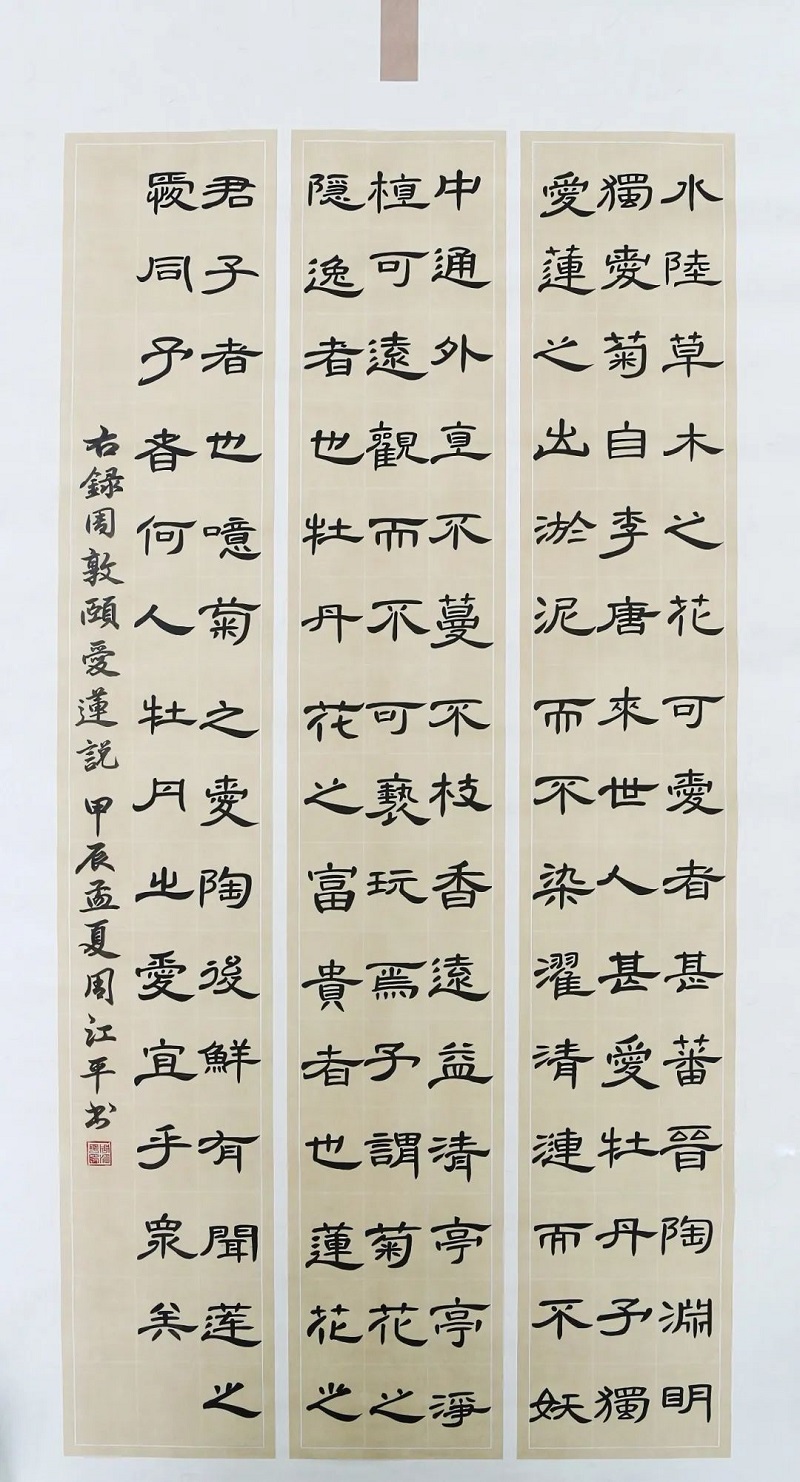 水陸草木之花可愛者甚蕃晉陶淵明
獨愛菊自李唐來世人甚愛牡丹予獨
愛蓮之出淤泥而不染濯清漣而不妖
中通外直不蔓不枝香遠益清亭亭淨
植可遠觀而不可褻玩焉予謂菊花之
隱逸者也牡丹花之富貴者也蓮花之
君子者也噫菊之愛陶後鮮有聞莲之
愛同予者何人牡丹之愛宜乎眾矣
右録周敦頤愛蓮説 甲辰孟夏周江平书